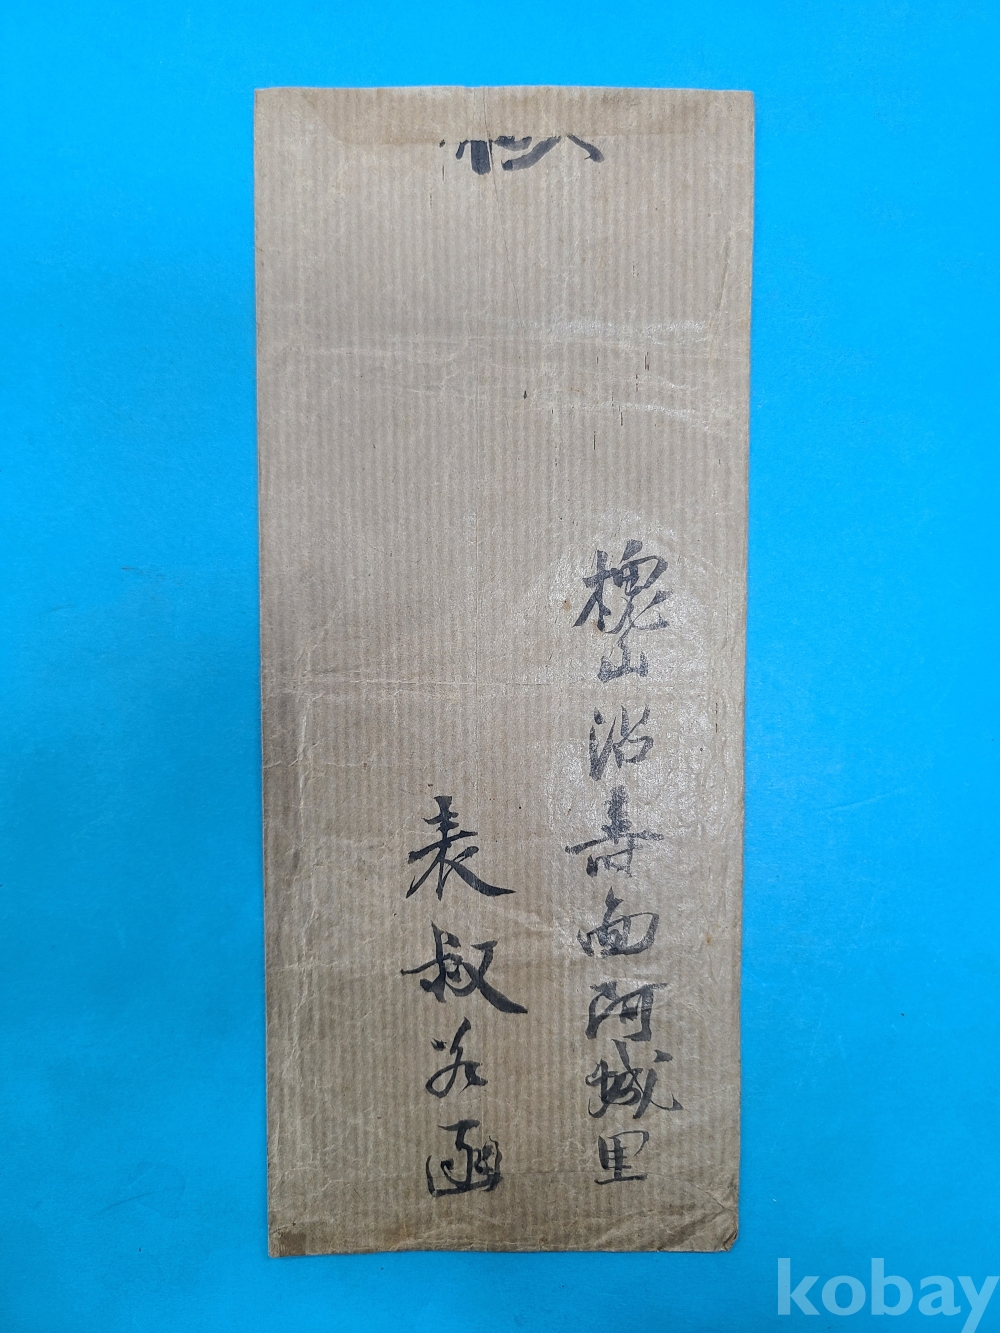 槐山沼壽面阿城里
表叔答函
kobay